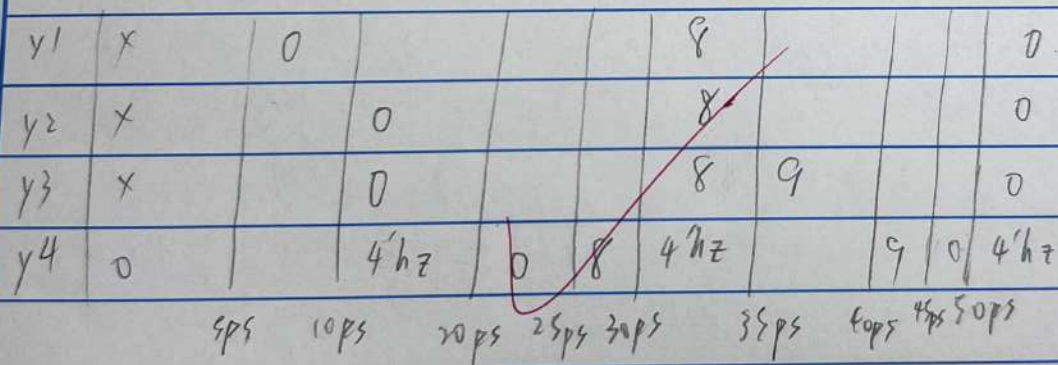 y1 x 0 8 0
y2 x 0 8 0
y3 x 0 8 9 0
y4 0 4'hz 0 8 4'hz 9 0 4'hz
5ps 10ps 20ps 25ps 30ps 35ps 40ps 45ps 50ps